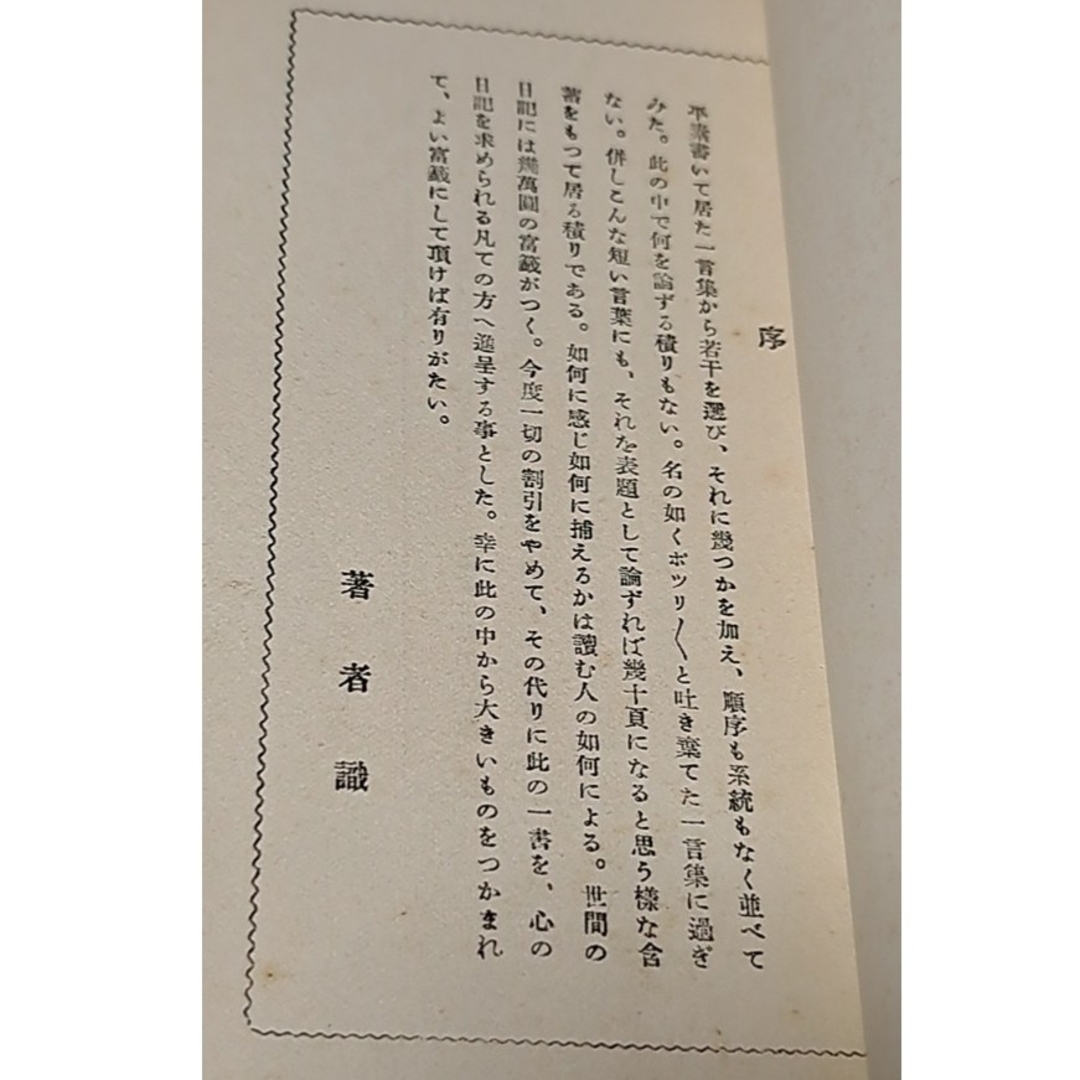 序
平素書いて居た一言集から若干を選び、それに幾つかを加え、順序も系統もなく並べて
みた。此の中で何を論ずる積りもない。名の如くポツリ〳〵と吐き棄てた一言集に過ぎ
ない。併しこんな短い言葉にも、それを表題として論ずれば幾十頁になると思う樣な含
蓄をもつて居る積りである。如何に感じ如何に捕えるかは讀む人の如何による。世間の
日記には幾萬圓の富籤がつく。今度一切の割引をやめて、その代りに此の一書を、心の
日記を求められる凡ての方へ進呈する事とした。幸に此の中から大きいものをつかまれ
て、よい富籤にして頂けば有りがたい。
著者識